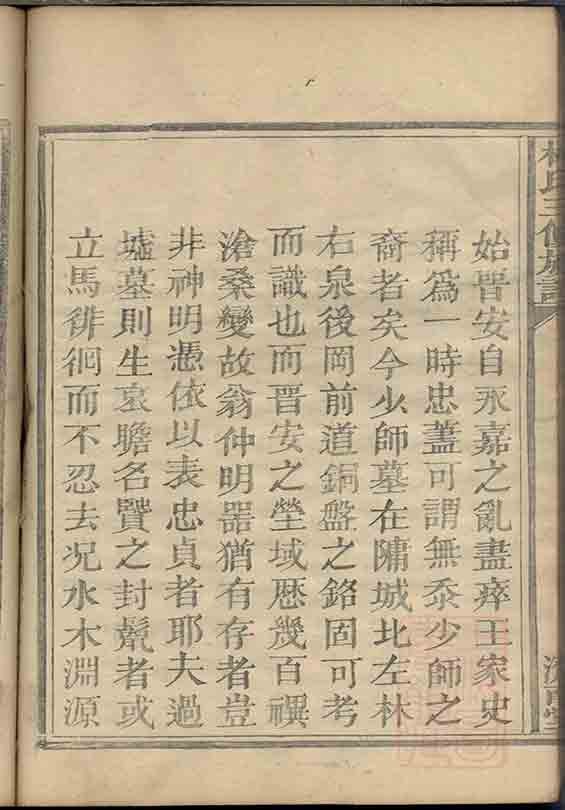 林氏三修族譜
始晋安自永嘉之亂盡瘁王家史
稱爲一時忠藎可謂無忝少師之
裔者矣今少師墓在牗城北左林
右泉後岡前道銅盤之銘固可考
而識也而晋安之塋域歷幾百禩
滄桑變故翁仲明器猶有存者豈
非神明憑依以表忠貞者耶夫過
墟墓則生哀瞻名賢之封鬣者或
立馬徘徊而不忍去况水木淵源